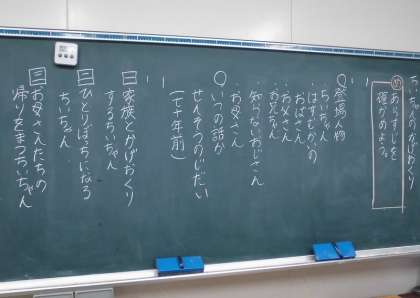 ちいちゃんのかげおくり
あらすじを
確かめよう。
○登場人物
・ちいちゃん
・はすむかいの
おばさん
・お父さん
・お兄ちゃん
・知らないおじさん
・お母さん
○いつの話か
せんそうのじだい
(七十年前)
一 家族とかげおくり
するちいちゃん
二 ひとりぼっちになる
ちいちゃん
三 お母さんたちの
帰りをまつちいちゃん